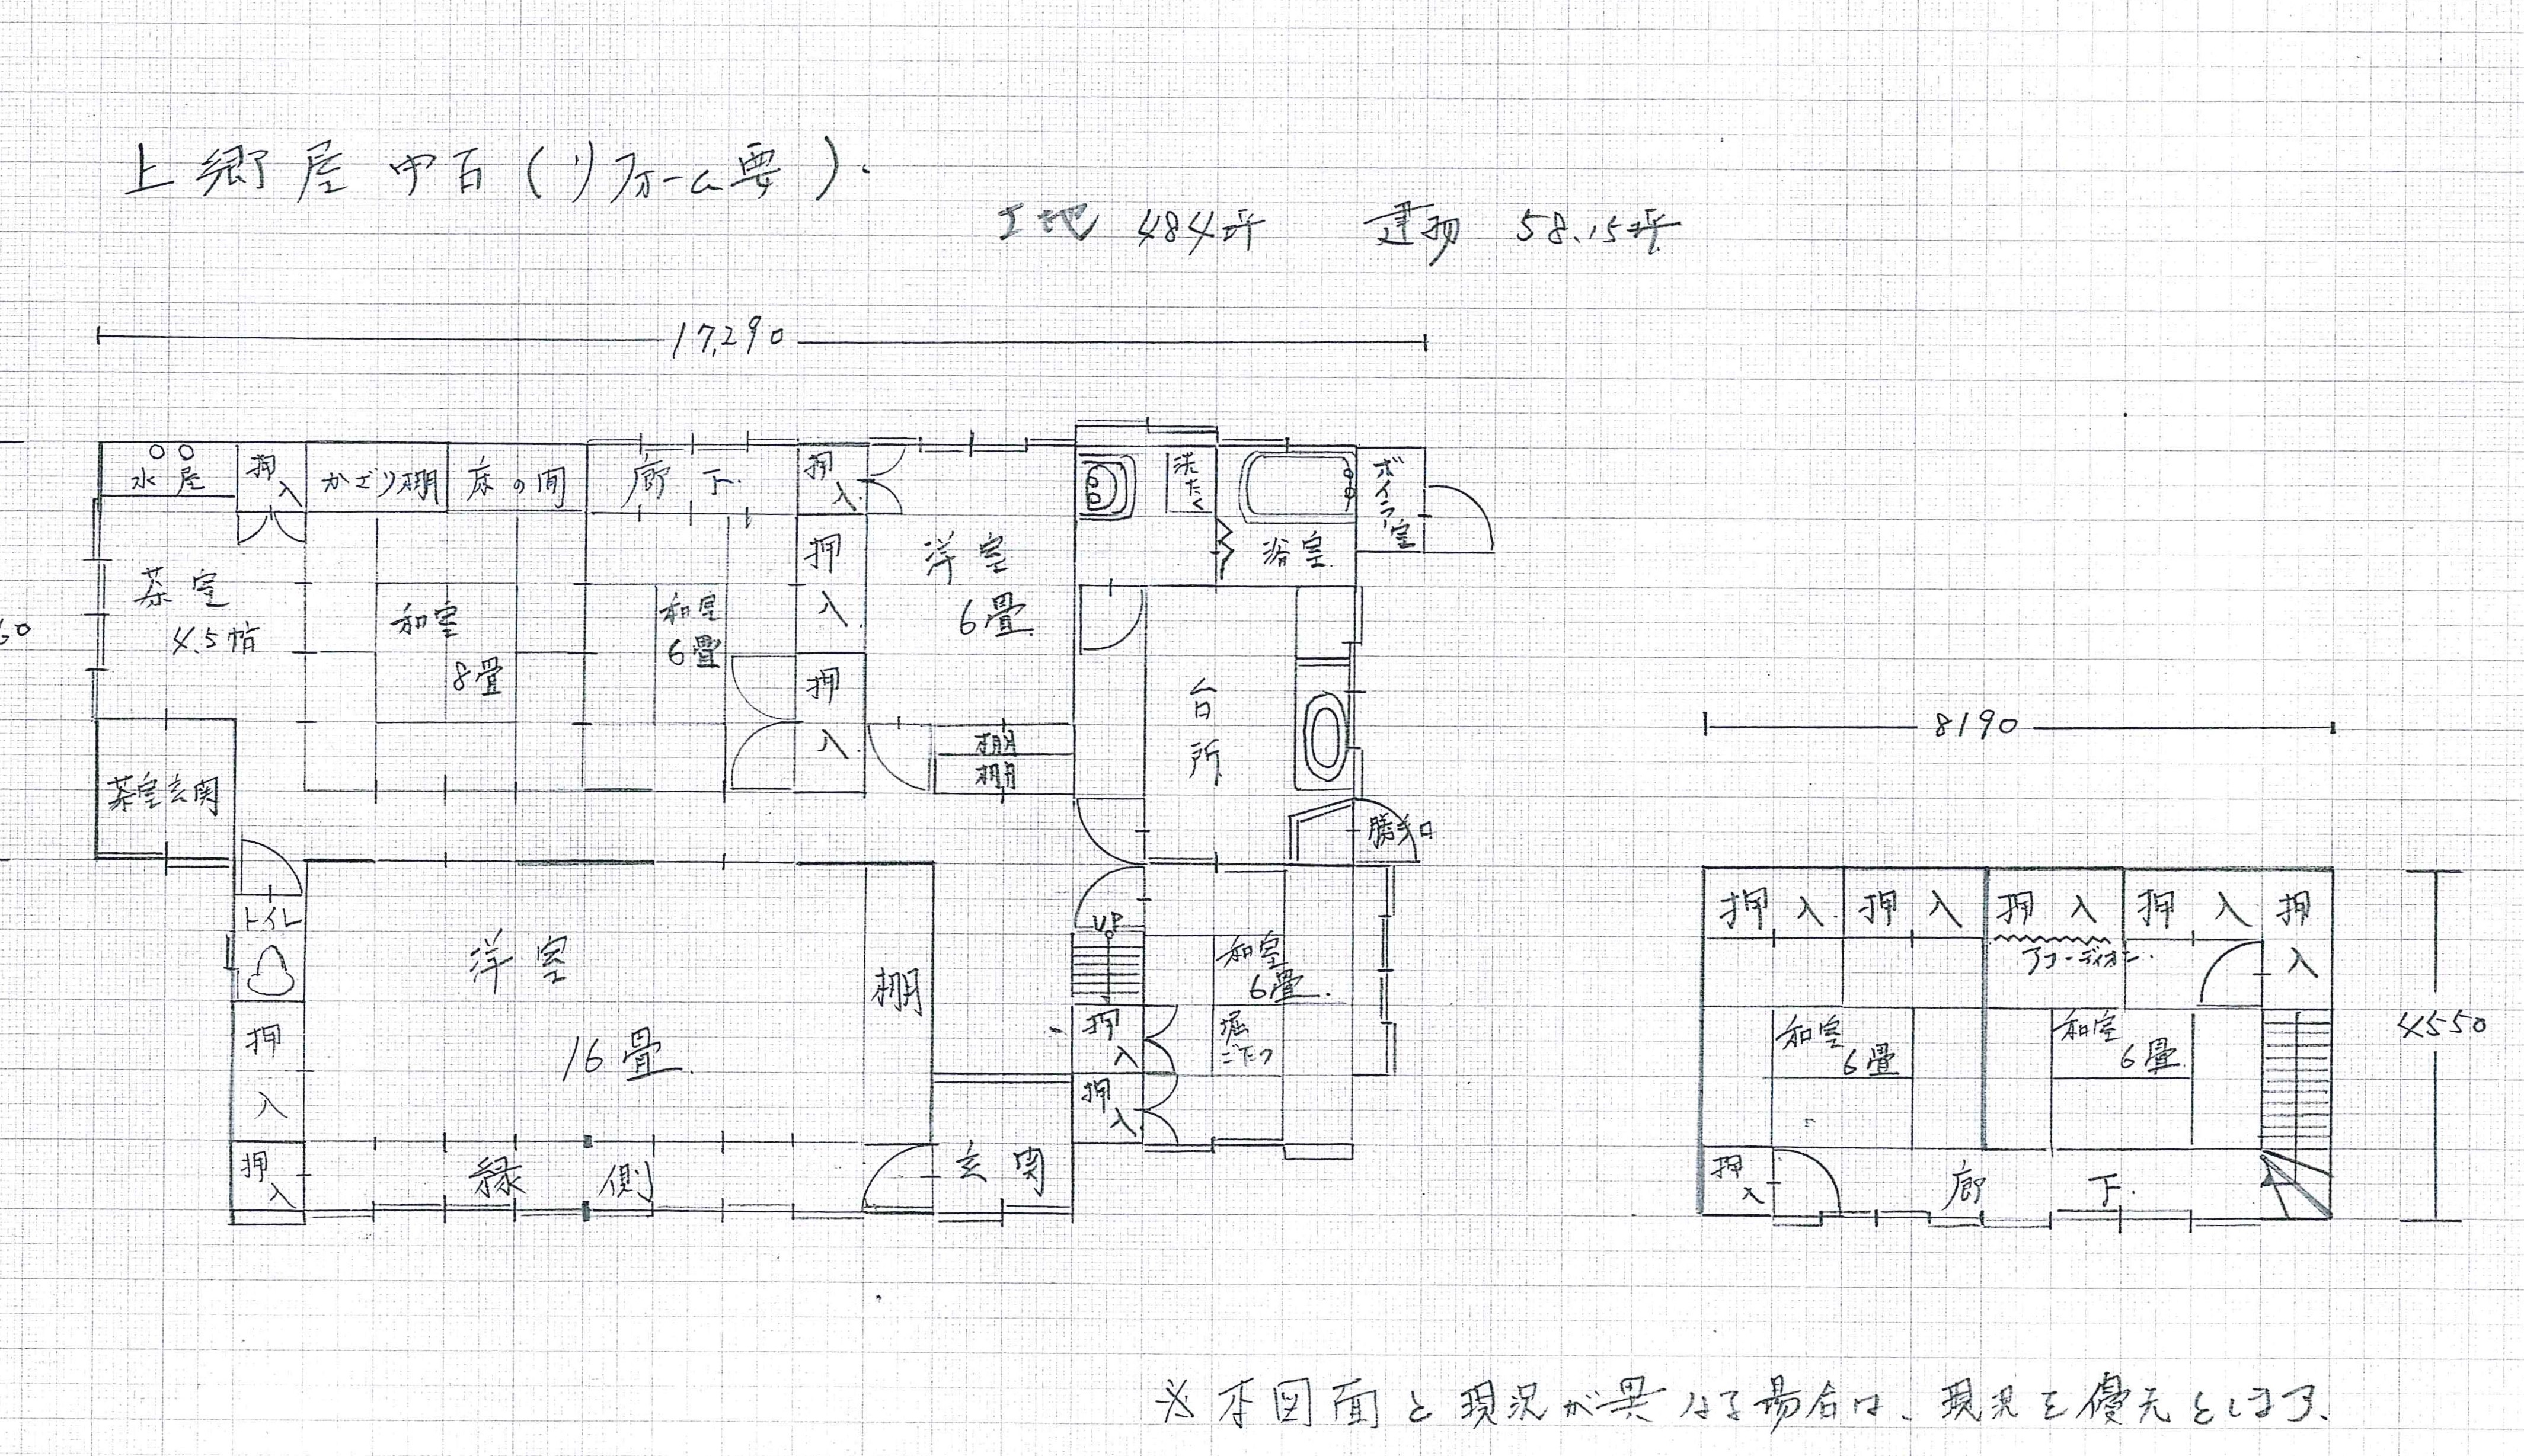 上郷屋中古(リフォーム要).
土地 484坪 建物 58.15坪
17,290
水屋
押入
かざり棚
床の間
廊下
押入
洗たく
ボイラー室
茶室
4.5帖
和室
8畳
和室
6畳
押入
押入
洋室
6畳
浴室
台所
棚
棚
茶室玄関
勝手口
8190
トイレ
洋室
16畳
棚
UP
和室
6畳
堀ごたつ
押入
押入
押入
押入
縁側
玄関
押入
押入
押入
押入
押入
アコーディオン
和室
6畳
和室
6畳
4550
押入
廊下
※本図面と現況が異なる場合は、現況を優先とします.